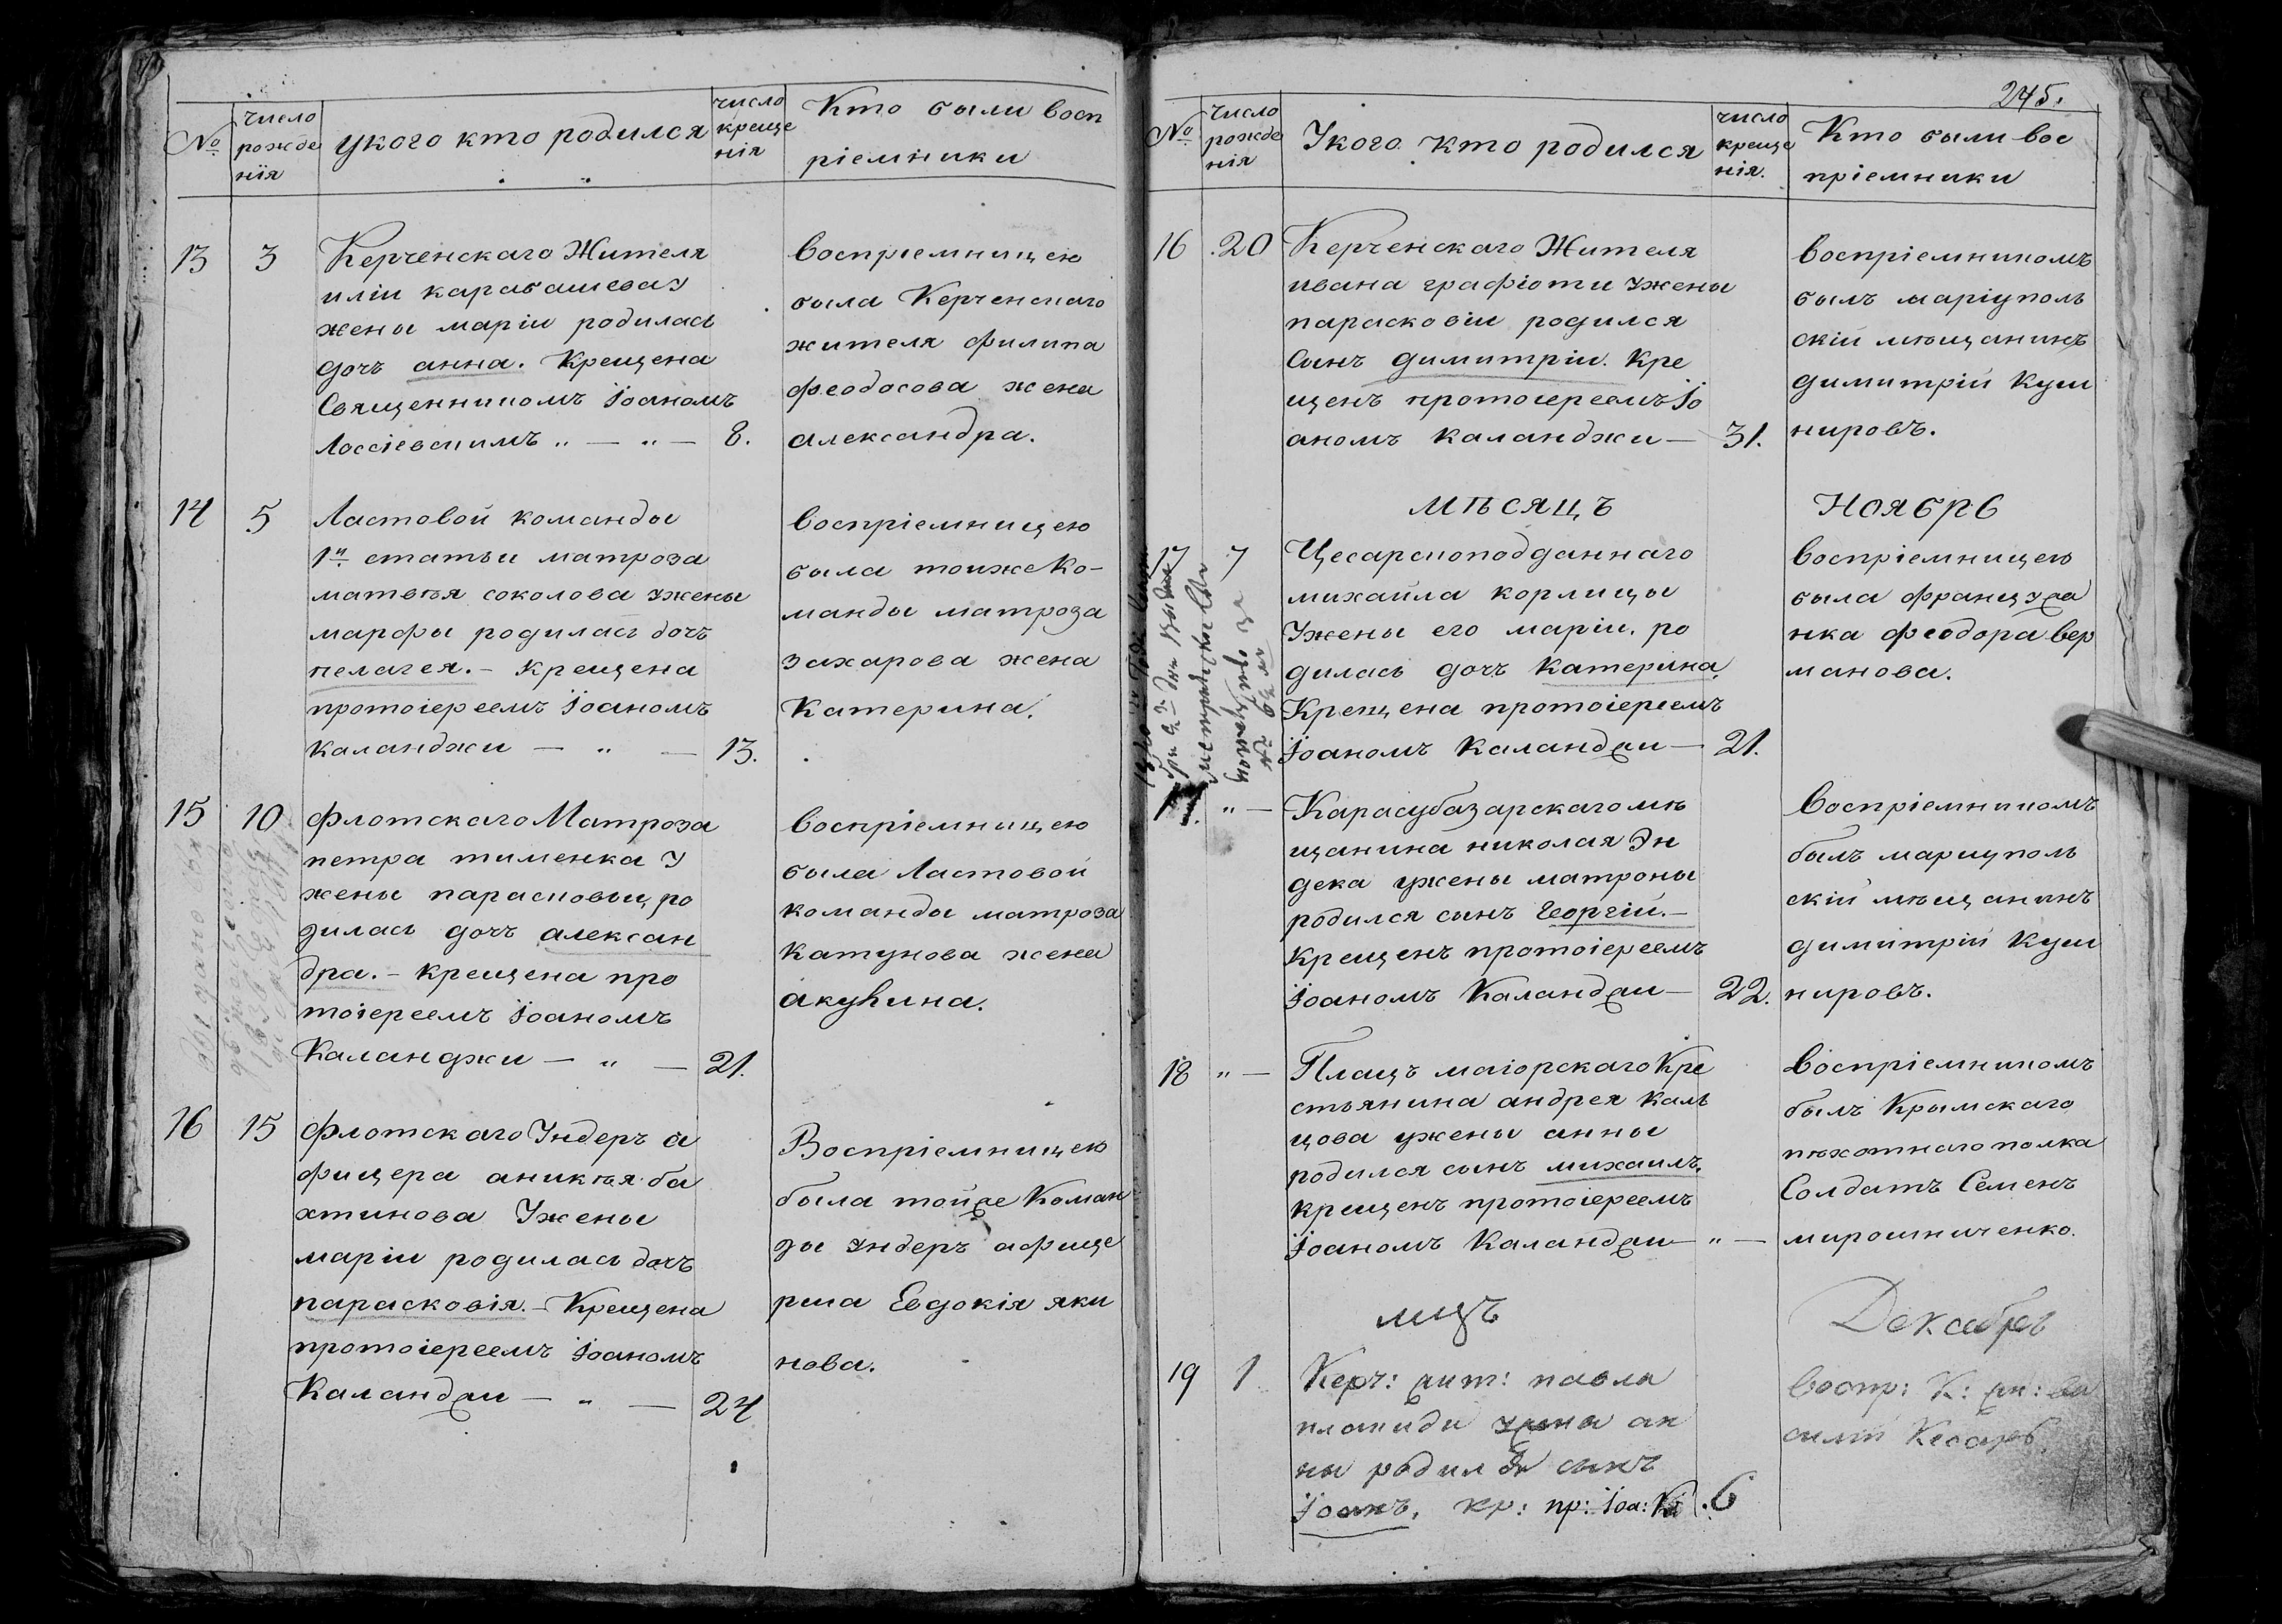 №
число
рожде
нія
укого кто родился
число
креще
нія
Кто были восп
ріемники
13
3
Керченскаго Жителя
иліи карабашева у
жены маріи родилась
дочь анна. Крещена
Священникомъ Іоаномъ
Лоссіевскимъ „ — „ —
8.
воспріемницею
была Керченскаго
жителя филипа
феодосова жена
александра.
14
5
Ластовой команды
1й статьи матроза
матвѣя соколова ужены
марфы родилась дочь
пелагея. — крещена
протоіереемъ Іоаномъ
каланджи — „ —
13.
воспріемницею
была тоижеко-
манды матроза
захарова жена
Катерина.
15
10
флотскаго Матроза
петра тименка у
жены парасковьи, ро
дилась дочь алексан
дра. — крещена про
тоіереемъ Іоаномъ
Каланджи — „ —
21.
воспріемницею
была Ластовой
команды матроза
катунова жена
акулина.
16
15
флотскаго Ундеръ а
фицера аникѣя ба
хтинова Ужены
маріи родилась дочь
парасковія. — Крещена
протоіереемъ Іоаномъ
Каланджи — „ —
24
Воспріемницею
была тойже Коман
ды ундеръ афице
рша Евдокія яки
нова.
245.
№
число
рожде
нія
Укого кто родился
число
креще
нія.
Кто были вос
пріемники
16
20
Керченскаго Жителя
ивана графіоти ужены
парасковіи родился
Сынъ димитріи. Кре
щенъ протоіереемъ Іо
аномъ каланджи —
31.
воспріемникомъ
былъ маріуполь
скій мѣщанинъ
димитрій куш
нировъ.
мѣсяцъ
Ноябрь
17
7
Цесарскоподданнаго
михайла корлицы
Ужены его маріи. ро
дилась дочь катерина.
Крещена протоіереемъ
Іоаномъ Каланджи —
21.
воспріемницею
была француже
нка феодора вер
манова.
„ —
Карасубазарскаго мѣ
щанина николая Эн
дека ужены матроны
родился сынъ Георгій. —
крещенъ протоіереемъ
Іоаномъ Каланджи —
22.
Воспріемникомъ
былъ мариуполь
скій мѣщанинъ
димитрій куш
нировъ.
18
„ —
Плацъ маіорскаго Кре
стьянина андрея каль
цова ужены анны
родился сынъ михаилъ.
крещенъ протоіереемъ
Іоаномъ Каланджи — „ —
воспріемникомъ
былъ Крымскаго
пѣхотнаго полка
Солдатъ Семенъ
мирошниченко.
мцъ
Декабрь
19
1
Керч: жит: павла
ужены ан
ны родился сынъ
Іоанъ. кр: пр: Іоа: К
6
воспр: К: жи: ва
силій